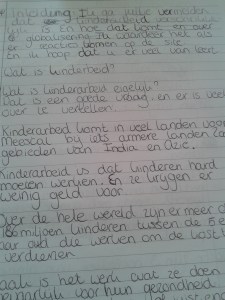 * Inleiding. Ik ga jullie vertellen
Kinderarbeid
is En hoe dat komt en over
globalisering Ik waardeer het als
u reacties komen op de site
En ik hoop dat u er was van leert
Wat is kinderbeid?
Wat is kinderarbeid eigelijk?
Dat is een goede vraag en er is veel
over te vertellen.
Kinderarbeid komt in veel landen voor
Meestal bij iets armere landen
gebieden van India en Azie.
Kinderarbeid is dat kinderen hard
moeten werken. En ze krijgen er
weinig geld voor
Over de hele wereld zijn er meer
miljoen kinderen tussen de 5 e
jaar oud die werken om de kost
verdienen
Vaak is het werk wat ze doen
voor hun gezondheid